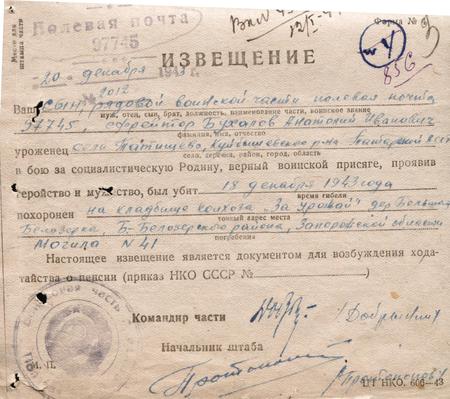 Место для штампа части
Полевая почта
97745
Форма №
856
ИЗВЕЩЕНИЕ
20 декабря 1943 г.
2012
Ваш сын рядовой воинской части полевая почта
муж, отец, сын, брат, должность, наименование части, воинское звание
97745 ефрейтор Анатолий Иванович
фамилия, имя, отчество
уроженец села Татищево, р-на
села, деревня, район, город, область
в бою за социалистическую Родину, верный воинской присяге, проявив
геройство и мужество, был убит 18 декабря 1943 года
время гибели
похоронен на кладбище колхоза „За Урожай" дер. Большая
точный адрес места
Белозерка, Б-Белозерского района, Запорожской области
погребения
Могила N 41
Настоящее извещение является документом для возбуждения хода-
тайства о пенсии (приказ НКО СССР №
Командир части
Начальник штаба
М. П.
/Протопопов/
ЦТ НКО. 600—43